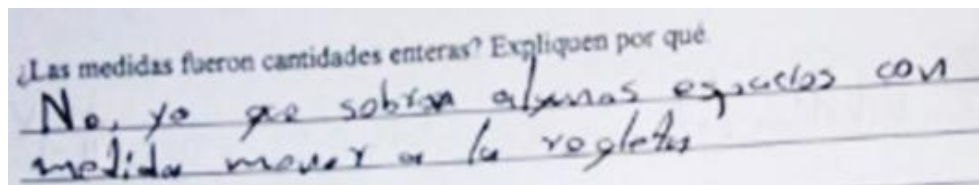 ¿Las medidas fueron cantidades enteras? Expliquen por qué.
No, ya que sobran algunos espacios con
medida menor a la regleta